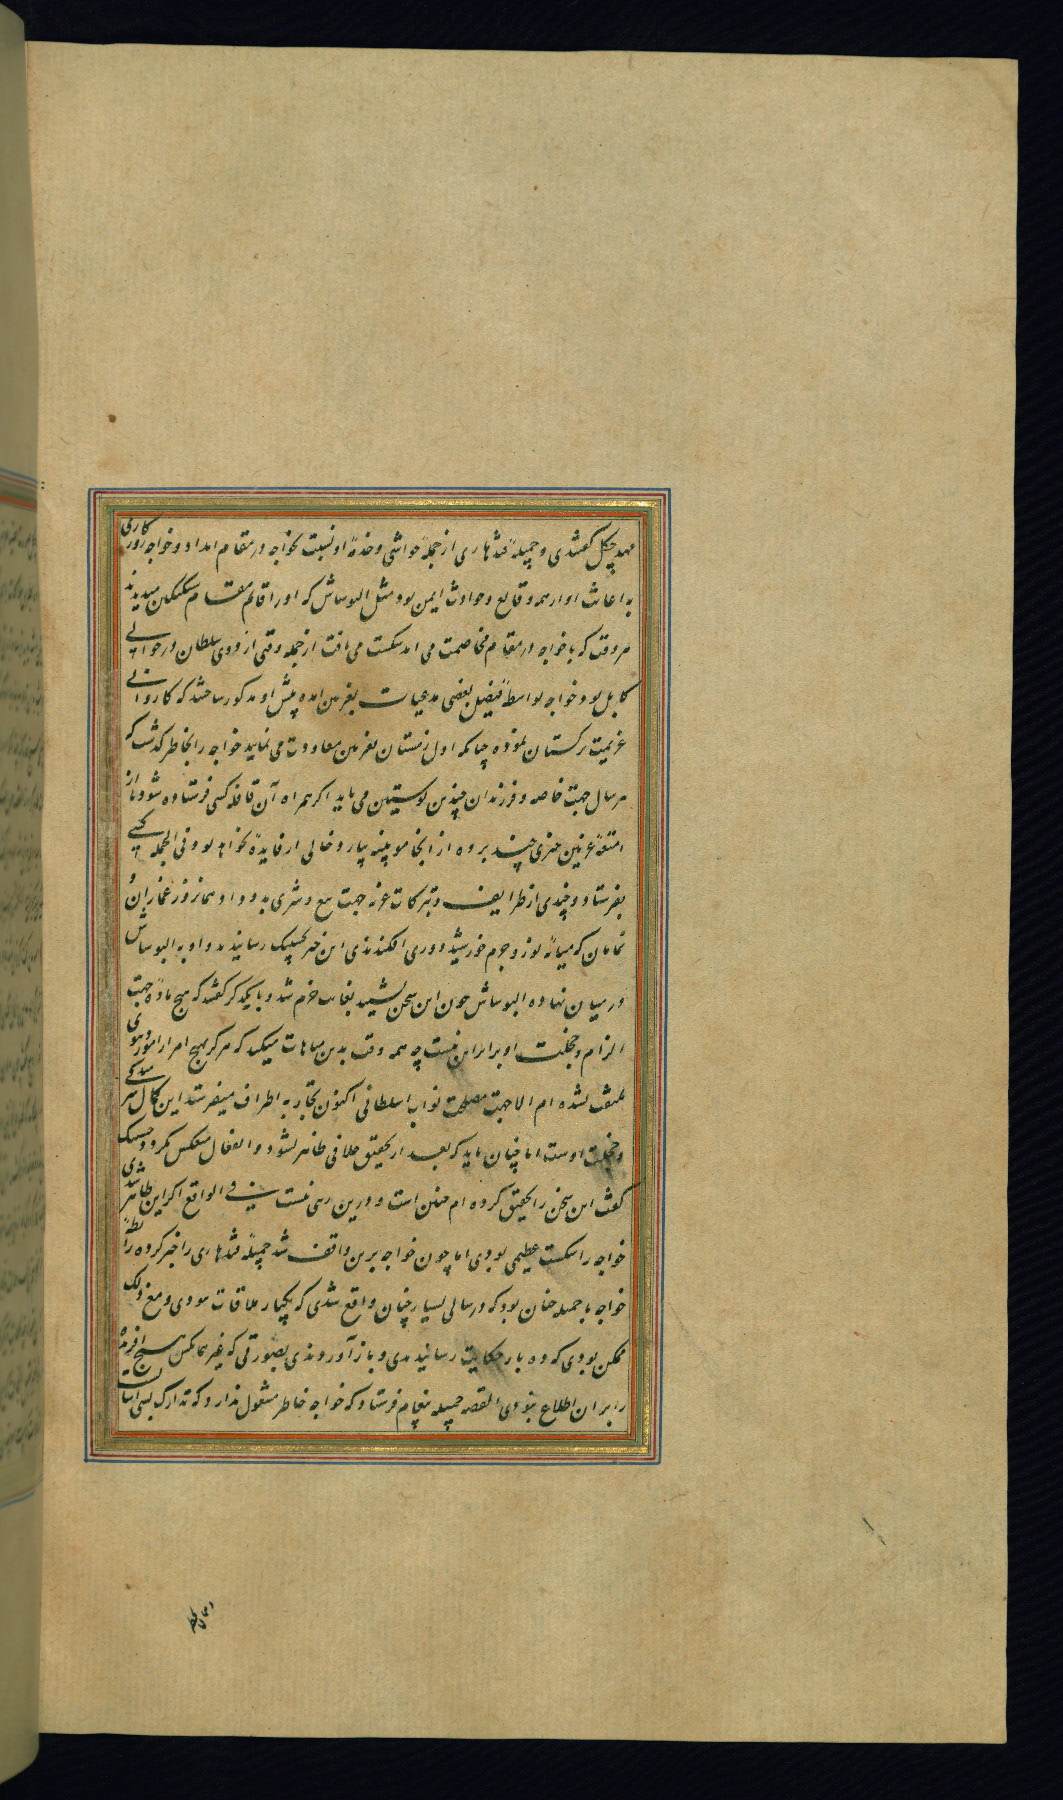 مهد چکل گفتندی و جمیله قندهاری از جمله حواشی و خدمه او نسبت بخواجه در مقام امداد و خواجه را در کارهای
به اعانت او از همه وقایع و حوادث ایمن بود مثل التونتاش که او را قائم مقام سبکتکین میدیدند
هر وقت که با خواجه در مقام مخاصمت می امد شکست می یافت از جمله وقتی از دوی سلطان در حوالی
کابل بود خواجه بواسطه فیصل بعضی مدعیات بغزنین امده پیش او مذکور ساختند که کاروانی
عزیمت ترکستان نموده چنانکه اول زمستان بغزنین معاودت می نماید خواجه را بخاطر گذشت که
هر سال جهت خاصه و فرزندان چندین پوستین می باید اکر همراه آن قافله کسی فرستاده شود و از
امتعه غزنین چیزی چند برده از انجا موینه بیارد خالی از فایده نخواهد بود فی الجمله کسی
بفرستاد و چندی از ظرایف و تبرکات غزنه جهت بیع و شری بدو داد همان روز غمازان و
نمامان که میانه نور و جرم خورشید دوری افکندندی این خبر بحسنک رسانیدند و او به التونتاش
در میان نهاده التونتاش چون این سخن بشنید بغایت خرم شد و با یکدیگر گفتند که هیچ ماده جهت
الزام و خجلت او برابر این نیست چه همه وقت بدین مباهات میکند که هرکز بهیچ امر از امور دنیوی
ملتفت نشده ام الا جهت مصلحت نواب سلطانی اکنون تجار به اطراف میفرستد این کمال شرمندگی
و خجلت اوست اما چنان باید که بعد از تحقیق خلافی ظاهر نشود و انفعال منعکس نکردد حسنک
گفت این سخن را تحقیق کرده ام متیقن است و درین ریبی نیست فی الواقع اکر این ظاهر شدی
خواجه را شکست عظیمی بودی اما چون خواجه برین واقف شد جمیله قندهاری را خبر کرده رابطه
خواجه با جمیله چنان بود که در سالی بسیار چنان واقع شدی که یکبار ملاقات نمودی و مع ذلک
ممکن بودی که ده بار حکایت رسانیدندی و باز آوردندی بصورتی که غیر ممکن هیچ افریده
را بر ان اطلاع نبودی القصه جمیله پیغام فرستاد که خواجه خاطر مشغول ندارد که تدارک بسی آسان